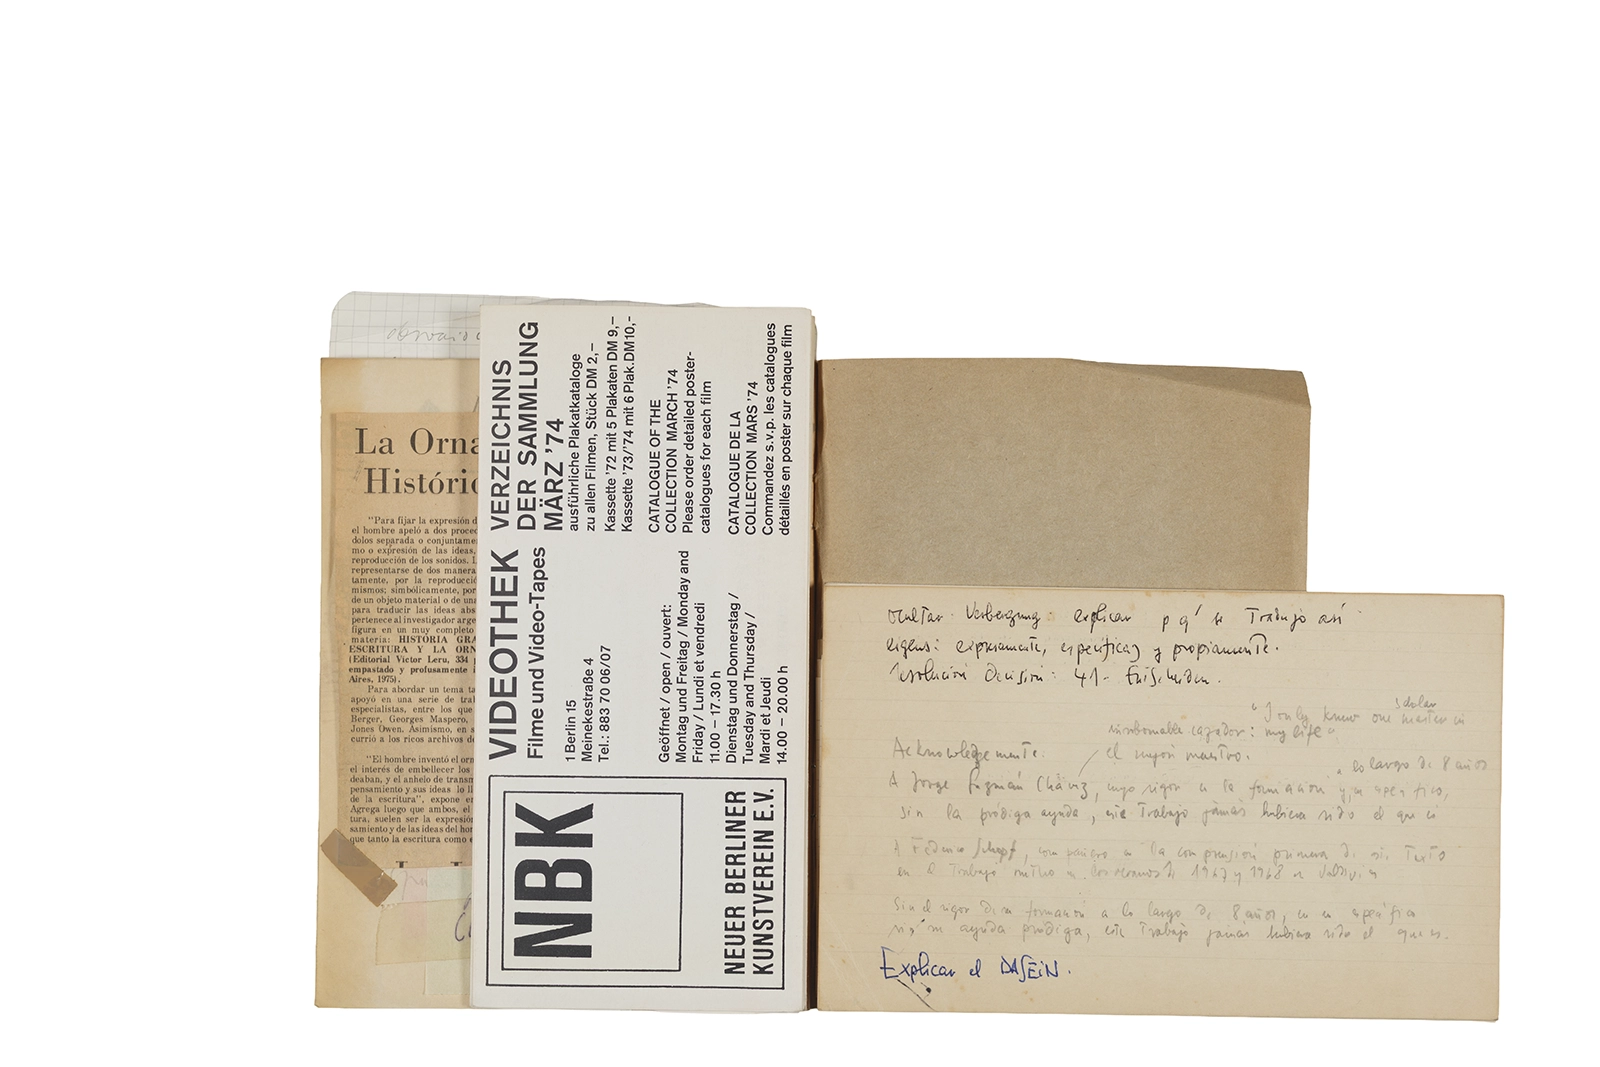 La Orna
Históric
"Para fijar la expresión d
el hombre apeló a dos proced
dolos separada o conjuntame
mo o expresión de las ideas,
reproducción de los sonidos. L
representarse de dos manera
tamente, por la reproducció
mismos; simbólicamente, por
de un objeto material o de una
para traducir las ideas abs
pertenece al investigador arge
figura en un muy completo
materia: HISTORIA GRA
ESCRITURA Y LA ORN
(Editorial Víctor Leru, 334 p
empastado y profusamente i
Aires, 1975).
Para abordar un tema ta
apoyó en una serie de trab
especialistas, entre los que
Berger, Georges Maspero,
Jones Owen. Asimismo, en s
currió a los ricos archivos de
"El hombre inventó el orn
el interés de embellecer los
deaban, y el anhelo de transm
pensamiento y sus ideas lo ll
de la escritura", expone en
Agrega luego que ambos, el
tura, suelen ser la expresión
samiento y de las ideas del hom
que tanto la escritura como e
VIDEOTHEK
Filme und Video-Tapes
1 Berlin 15
Meinekestraße 4
Tel.: 883 70 06/07
Geöffnet / open / ouvert:
Montag und Freitag / Monday and
Friday / Lundi et vendredi
11.00 – 17.30 h
Dienstag und Donnerstag /
Tuesday and Thursday /
Mardi et Jeudi
14.00 – 20.00 h
VERZEICHNIS
DER SAMMLUNG
MÄRZ '74
ausführliche Plakatkataloge
zu allen Filmen, Stück DM 2,–
Kassette '72 mit 5 Plakaten DM 9,–
Kassette '73/'74 mit 6 Plak.DM10,–
CATALOGUE OF THE
COLLECTION MARCH '74
Please order detailed poster-
catalogues for each film
CATALOGUE DE LA
COLLECTION MARS '74
Commandez s.v.p. les catalogues
détaillés en poster sur chaque film
NBK
NEUER BERLINER
KUNSTVEREIN E.V.
ocultar Verbergung: explicar p q' se Trabajo así
eigens: expresamente, específica y propiamente.
resolución decisión: 41- Entscheiden.
"I only knew one master in
insobornable cazador: my life".
Acknowledgemente: el mejor maestro.
a lo largo de 8 años
A Jorge Guzmán Chávez, cuyo rigor en la formación y, en específico,
sin la pródiga ayuda, este Trabajo jamás hubiera sido el que es
A Federico Schopf, compañero en la comprensión primera de este Texto
en el Trabajo 1967 y 1968 en Valdivia
Sin el rigor de su formación a lo largo de 8 años, en específico
sin su ayuda pródiga, este Trabajo jamás hubiera sido el que es.
Explicar el DASEIN.